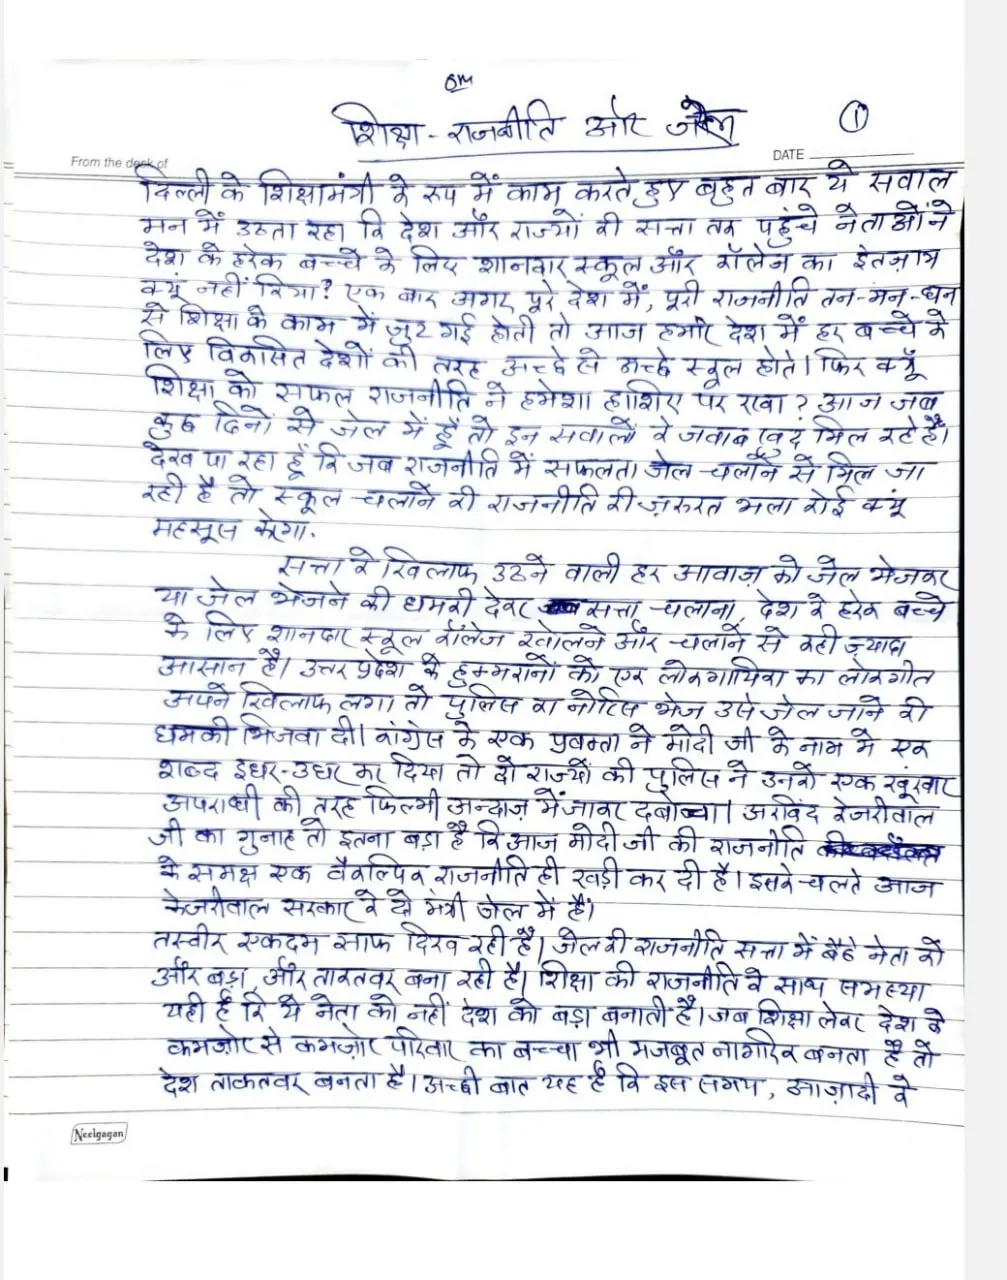 ॐ
शिक्षा - राजनीति और जेल
①
From the desk of
DATE
दिल्ली के शिक्षामंत्री के रूप में काम करते हुए बहुत बार ये सवाल
मन में उठता रहा कि देश और राज्यों की सत्ता तक पहुंचे नेताओं ने
देश के हरेक बच्चे के लिए शानदार स्कूल और कॉलेज का इंतज़ाम
क्यूं नहीं किया? एक बार अगर पूरे देश में, पूरी राजनीति तन-मन-धन
से शिक्षा के काम में जुट गई होती तो आज हमारे देश में हर बच्चे के
लिए विकासित देशों की तरह अच्छे से अच्छे स्कूल होते। फिर क्यूँ
शिक्षा को सफल राजनीति ने हमेशा हाशिए पर रखा? आज जब
कुछ दिनों से जेल में हूँ तो इन सवालों के जवाब खुद मिल रहे हैं।
देख पा रहा हूँ कि जब राजनीति में सफलता जेल चलाने से मिल जा
रही है तो स्कूल चलाने की राजनीति की ज़रुरत भला कोई क्यूं
महसूस करेगा.
सत्ता के खिलाफ उठने वाली हर आवाज़ को जेल भेजकर
या जेल भेजने की धमकी देकर सत्ता चलाना, देश के हरेक बच्चे
के लिए शानदार स्कूल कॉलेज खोलने और चलाने से कही ज़्यादा
आसान है। उत्तर प्रदेश के हुक्मरानों को एक लोकगायिका का लोकगीत
अपने खिलाफ लगा तो पुलिस का नोटिस भेज उसे जेल जाने की
धमकी भिजवा दी। कांग्रेस के एक प्रवक्ता ने मोदी जी के नाम मे एक
शब्द इधर-उधर कर दिया तो दो राज्यों की पुलिस ने उनको एक खूंखार
अपराधी की तरह फिल्मी अन्दाज़ में जाकर दबोच्चा। अरविंद केजरीवाल
जी का गुनाह तो इतना बड़ा है कि आज मोदी जी की राजनीति
के समक्ष एक वैकल्पिक राजनीति ही खड़ी कर दी है। इसके चलते आज
केजरीवाल सरकार के दो मंत्री जेल में हैं।
तस्वीर एकदम साफ दिख रही है। जेल की राजनीति सत्ता में बैठे नेता को
और बड़ा, और ताकतवर बना रही है। शिक्षा की राजनीति के साथ समस्या
यही है कि ये नेता को नहीं देश को बड़ा बनाती है। जब शिक्षा लेकर देश के
कमज़ोर से कमज़ोर परिवार का बच्चा भी मजबूत नागरिक बनता है तो
देश ताकतवर बनता है। अच्छी बात यह है कि इस समय, आज़ादी के
Neelgagan